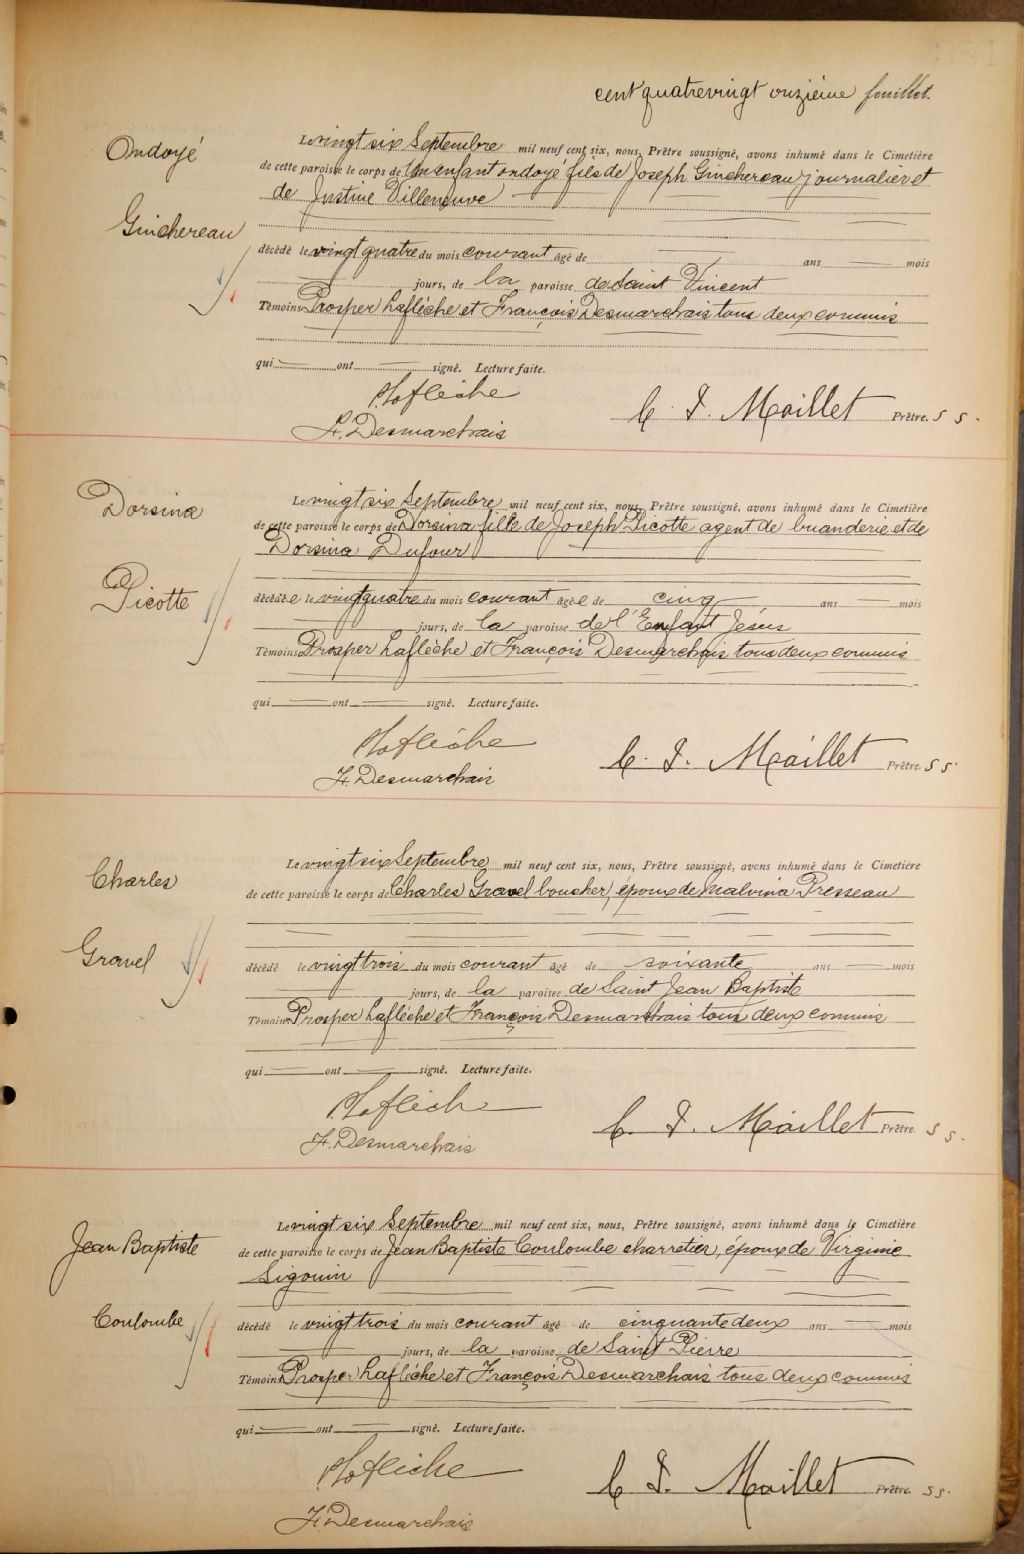 cent quatrevingt onzième feuillet.
Ondoyé
Guichereau
Le vingt six Septembre mil neuf cent six, nous, Prêtre soussigné, avons inhumé dans le Cimetière
de cette paroisse le corps de Un enfant ondoyé fils de Joseph Guichereau journalier et
de Justine Villeneuve
décédé le vingt quatre du mois courant âgé de ans mois
jours, de la paroisse de Saint Vincent
Témoins Prosper Laflèche et François Desmarchais tous deux commis
qui ont signé. Lecture faite.
PLaflèche
F. Desmarchais
C. J. Maillet Prêtre. S S.
Dorsina
Picotte
Le vingt six Septembre mil neuf cent six, nous, Prêtre soussigné, avons inhumé dans le Cimetière
de cette paroisse le corps de Dorsina fille de Joseph Picotte agent de buanderie et de
Dorsina Dufour
décédée le vingt quatre du mois courant âgée de cinq ans mois
jours, de la paroisse de l'Enfant Jésus
Témoins Prosper Laflèche et François Desmarchais tous deux commis
qui ont signé. Lecture faite.
PLaflèche
F. Desmarchais
C. J. Maillet Prêtre. S S.
Charles
Gravel
Le vingt six Septembre mil neuf cent six, nous, Prêtre soussigné, avons inhumé dans le Cimetière
de cette paroisse le corps de Charles Gravel boucher, époux de Malvina Presseau
décédé le vingt trois du mois courant âgé de soixante ans mois
jours, de la paroisse de Saint Jean Baptiste
Témoins Prosper Laflèche et François Desmarchais tous deux commis
qui ont signé. Lecture faite.
PLaflèche
F. Desmarchais
C. J. Maillet Prêtre S S.
Jean Baptiste
Coulombe
Le vingt six Septembre mil neuf cent six, nous, Prêtre soussigné, avons inhumé dans le Cimetière
de cette paroisse le corps de Jean Baptiste Coulombe charretier, époux de Virginie
Sigouin
décédé le vingt trois du mois courant âgé de cinquante deux ans mois
jours, de la paroisse de Saint Pierre
Témoins Prosper Laflèche et François Desmarchais tous deux commis
qui ont signé. Lecture faite.
PLaflèche
F. Desmarchais
C J. Maillet Prêtre. S S.